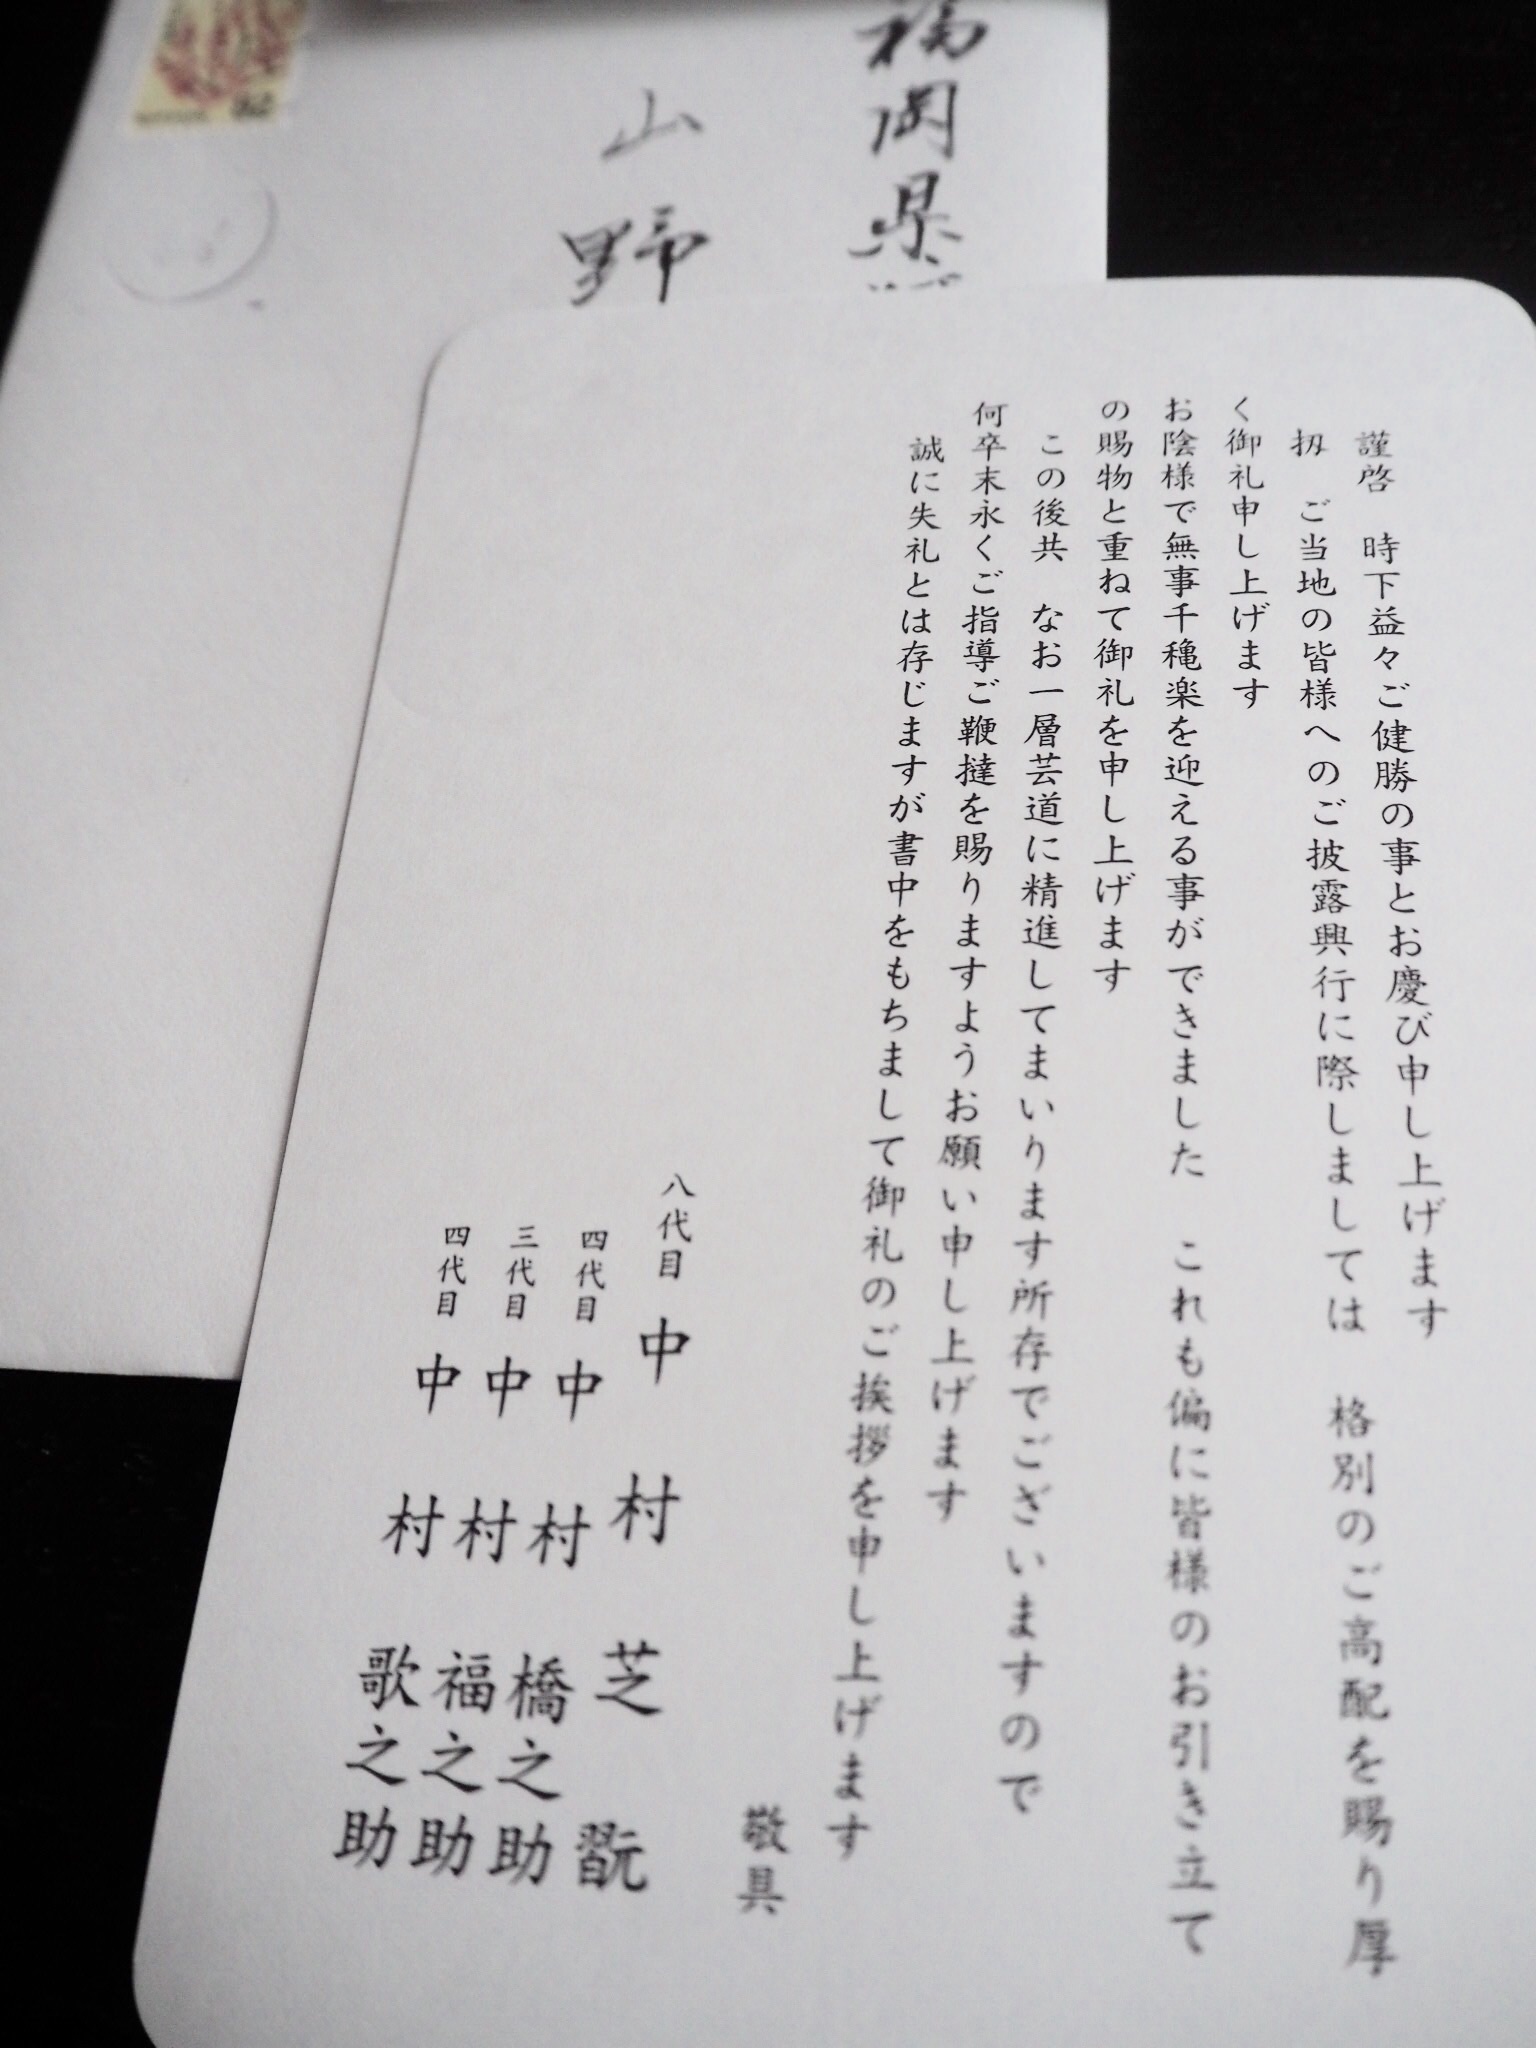 福岡県
山野
82
謹啓　時下益々ご健勝の事とお慶び申し上げます
扨　ご当地の皆様へのご披露興行に際しましては　格別のご高配を賜り厚
く御礼申し上げます
お陰様で無事千穐楽を迎える事ができました　これも偏に皆様のお引き立て
の賜物と重ねて御礼を申し上げます
この後共　なお一層芸道に精進してまいります所存でございますので
何卒末永くご指導ご鞭撻を賜りますようお願い申し上げます
誠に失礼とは存じますが書中をもちまして御礼のご挨拶を申し上げます
敬具
八代目　中村芝翫
四代目　中村橋之助
三代目　中村福之助
四代目　中村歌之助